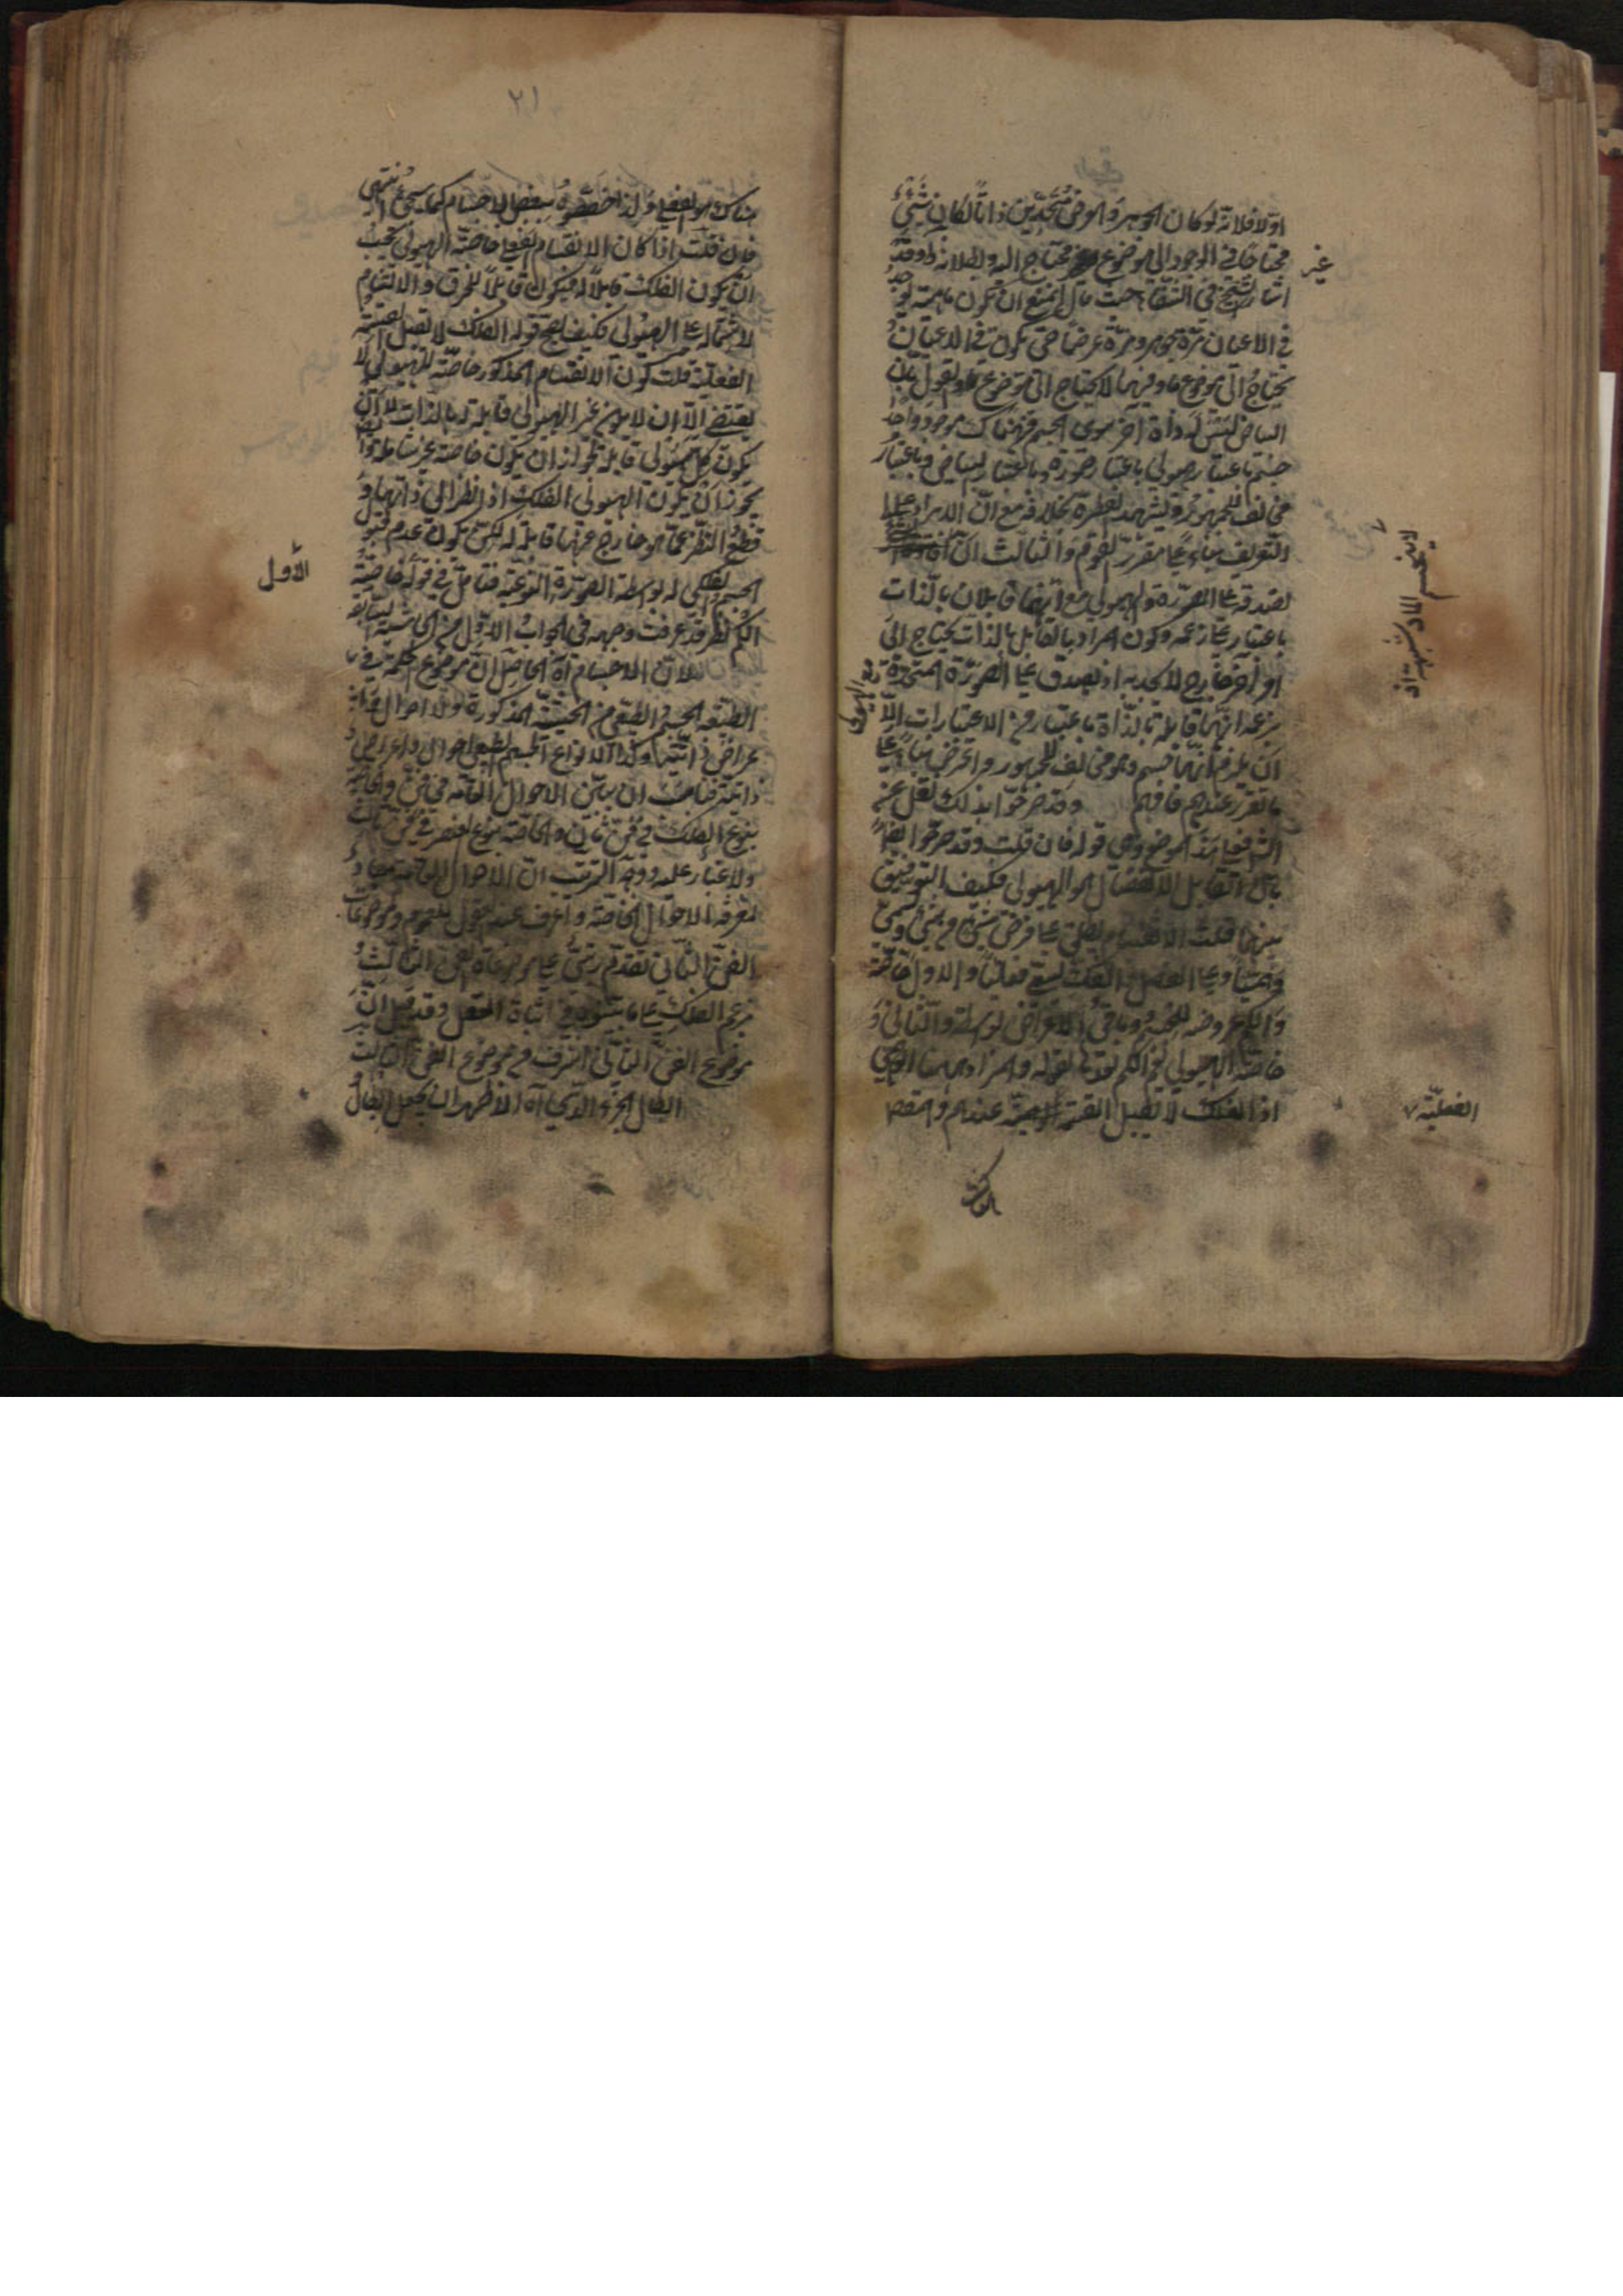 اولا فلانه لو كان الجوهر والعرض متحدين ذاتا لكان شيء
محتاجا في الوجود الى موضوع وغير محتاج اليه وبطلانه ظ وقد
غير
اشار الشيخ في الشفاء حيث قال يمتنع ان تكون ماهية توجد
في الاعيان مرة جوهر ومرة عرضا حتى تكون في الاعيان
يحتاج الى موضوع ما وفيها لا يحتاج الى موضوع ما والقول بان
البياض ليس له ذات آخر سوى الجسم فهناك موجود واحد
جسم باعتبار هيولى باعتبار صورة باعتبار بياض وباعتبار
مخالف للجمهور ويشهد الفطرة بخلافه مع ان الايراد على
التعريف بناء على مقرر القوم والثالث
لصدقه على الصورة والهيولى مع انهما قابلان بالذات
باعتبار زعمه وكون المراد بالقابل بالذات يحتاج الى
امر آخر خارج لا يجديه اذ يصدق على الصورة
مع الهيولى
بزعمه انهما قابلة بالذات باعتبار من الاعتبارات الا
ان يلتزم انهما جسم وهو مخالف للجمهور والغرض بناء على
ما تقرر عندهم فافهم وقد صرحوا بذلك نقل عنه
في هذا الموضع وهي قوله فان قلت وقد صرحوا ايضا
بان القابل للانفصال هو الهيولى فكيف التوفيق
بينهما قلت الانقسام يطلق على فرض شيء من شيء ويسمى
وهميا وعلى الفصل والفك ويسمى فعليا والاول خاصة
والكم عروضه للجسم وباقي الاعراض بواسطة والثاني
خاصة الهيولى قوله والمراد هيهنا الوهمي
اذ الفلك لا يقبل القسمة عندهم والمقصد
الفعلية
هناك هو الفعلي ولذا خصصوه ببعض الاجسام كما سيجيء انتهى
فان قلت اذا كان الانقسام الفعلي خاصة الهيولى يجب
ان يكون الفلك قابلا له فيكون قابلا للخرق والالتيام
لاشتماله على الهيولى فكيف يصح قوله الفلك لا يقبل القسمة
الفعلية قلت كون الانقسام المذكور خاصة للهيولى لا
يقتضي الا ان لا يوجد غير الهيولى قابلة له بالذات لا ان
يكون كل هيولى قابلة له لجواز ان تكون خاصة غير شاملة
يجوز ان يكون الهيولى الفلك اذا نظر الى ذاتها و
قطع النظر عما هو خارج عنها قابلة له لكن يكون عدم قبول
الجسم الفلكي له بواسطة الصورة النوعية فتأمل في قوله خاصة
الاول
الكم نظر قد عرفت وجهه في الجواب الاول من الحاشية السابقة
لان الاجسام آه الحاصل ان موضوع الحكمة
الطبيعية الجسم الطبيعي من الحيثية المذكورة وله احوال
اعراض ذاتية وكذا لانواع الجسم الطبيعي احوال واعراض
ذاتية فناسب ان يبين الاحوال العامة في فن والخاصة
بنوع الفلك في فن ثان والخاصة بنوع العنصر في فن ثالث
ولا غبار عليه ووجه الترتيب ان الاحوال العامة
معرفة الاحوال الخاصة واعرف عند العقول للعموم وموضوعات
الفن الثاني تقدم رتبي على موضوعات الفن الثالث
بزعم الفلك على ما بينوه في اثبات العقل وقد قيل ان
موضوع الفن الثاني اشرف من موضوع الفن الثالث
ابطال الجزء الذي آه الاظهر ان يجعل ابطال